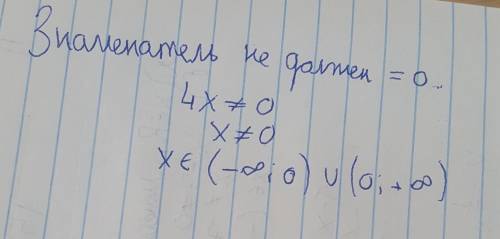 Знаменатель не должен = 0.
4x ≠ 0
x ≠ 0
x ∈ (-∞; 0) ∪ (0; +∞)